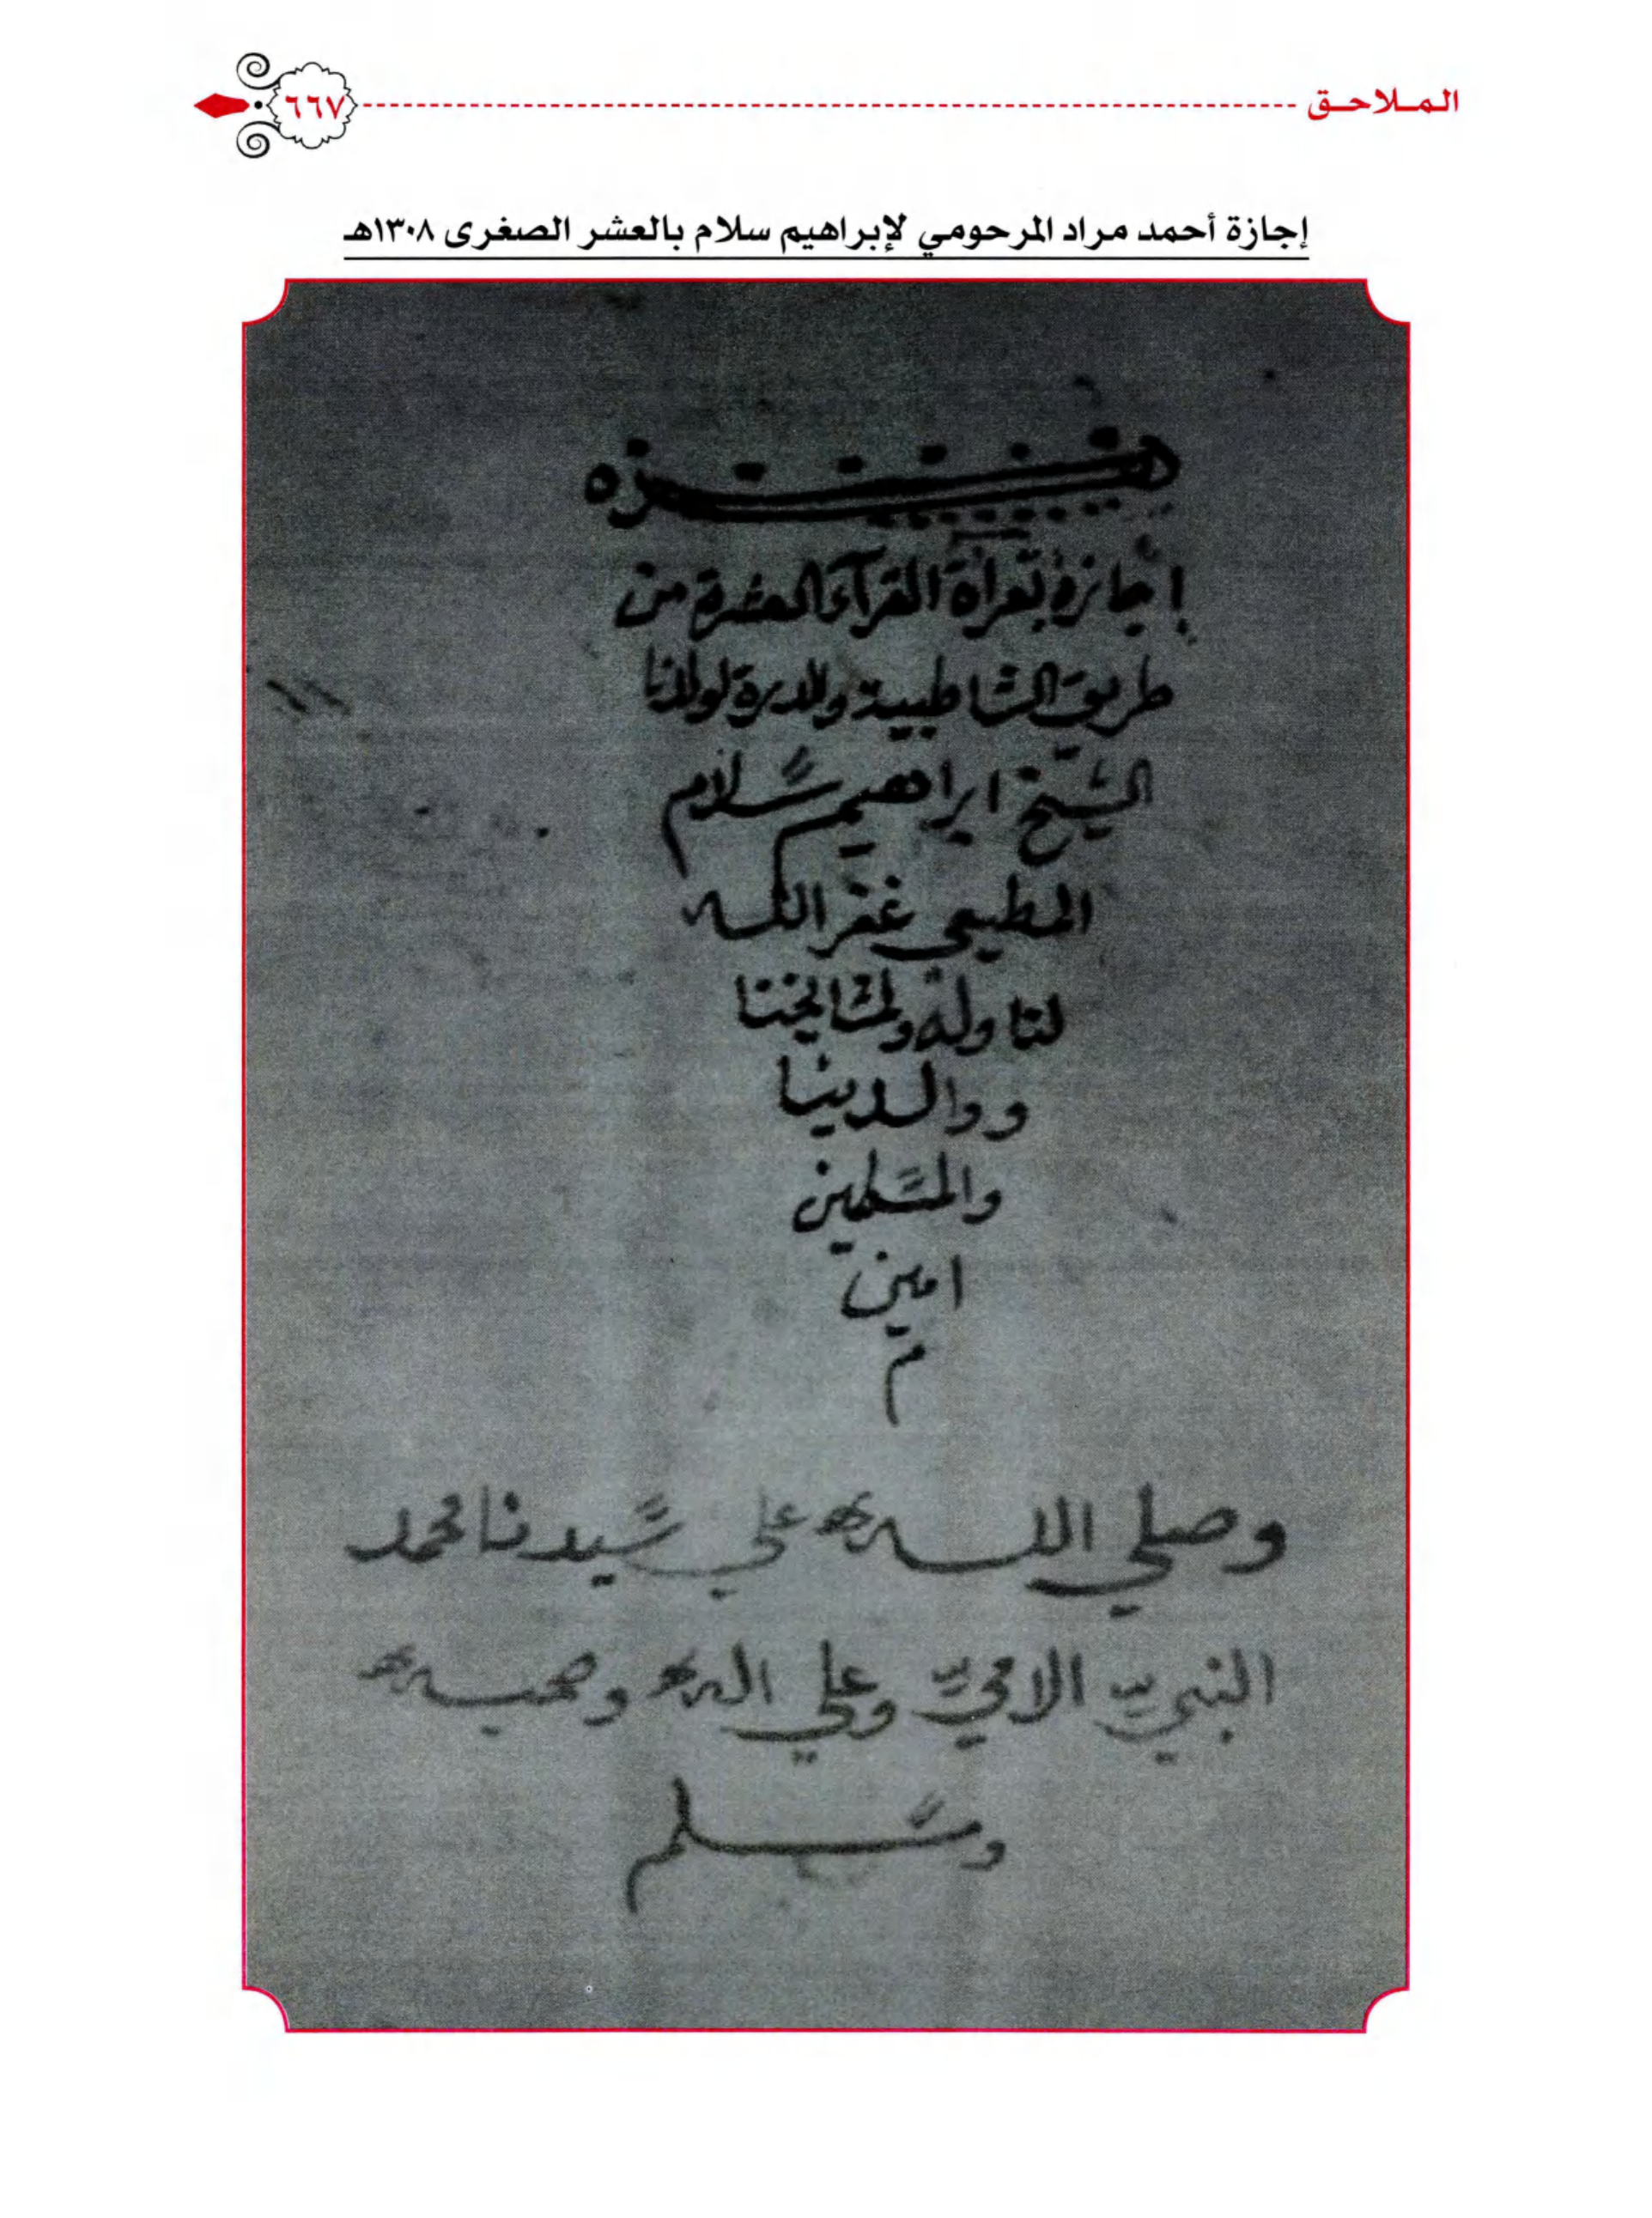 الملاحق
٦٦٧
إجازة أحمد مراد المرحومي لإبراهيم سلام بالعشر الصغرى ١٣٠٨هـ
هذه
إجازة بقرأة القرآء العشرة من
طريق الشاطبية والدرة لولدنا
الشيخ ابراهيم سلام
المطيعى غفر الله
لنا وله ولمشايخنا
ووالدينا
والمسلمين
امين
م
وصلي الله على سيدنا محمد
النبيّ الاميّ وعلي اله وصحبه
وسلم